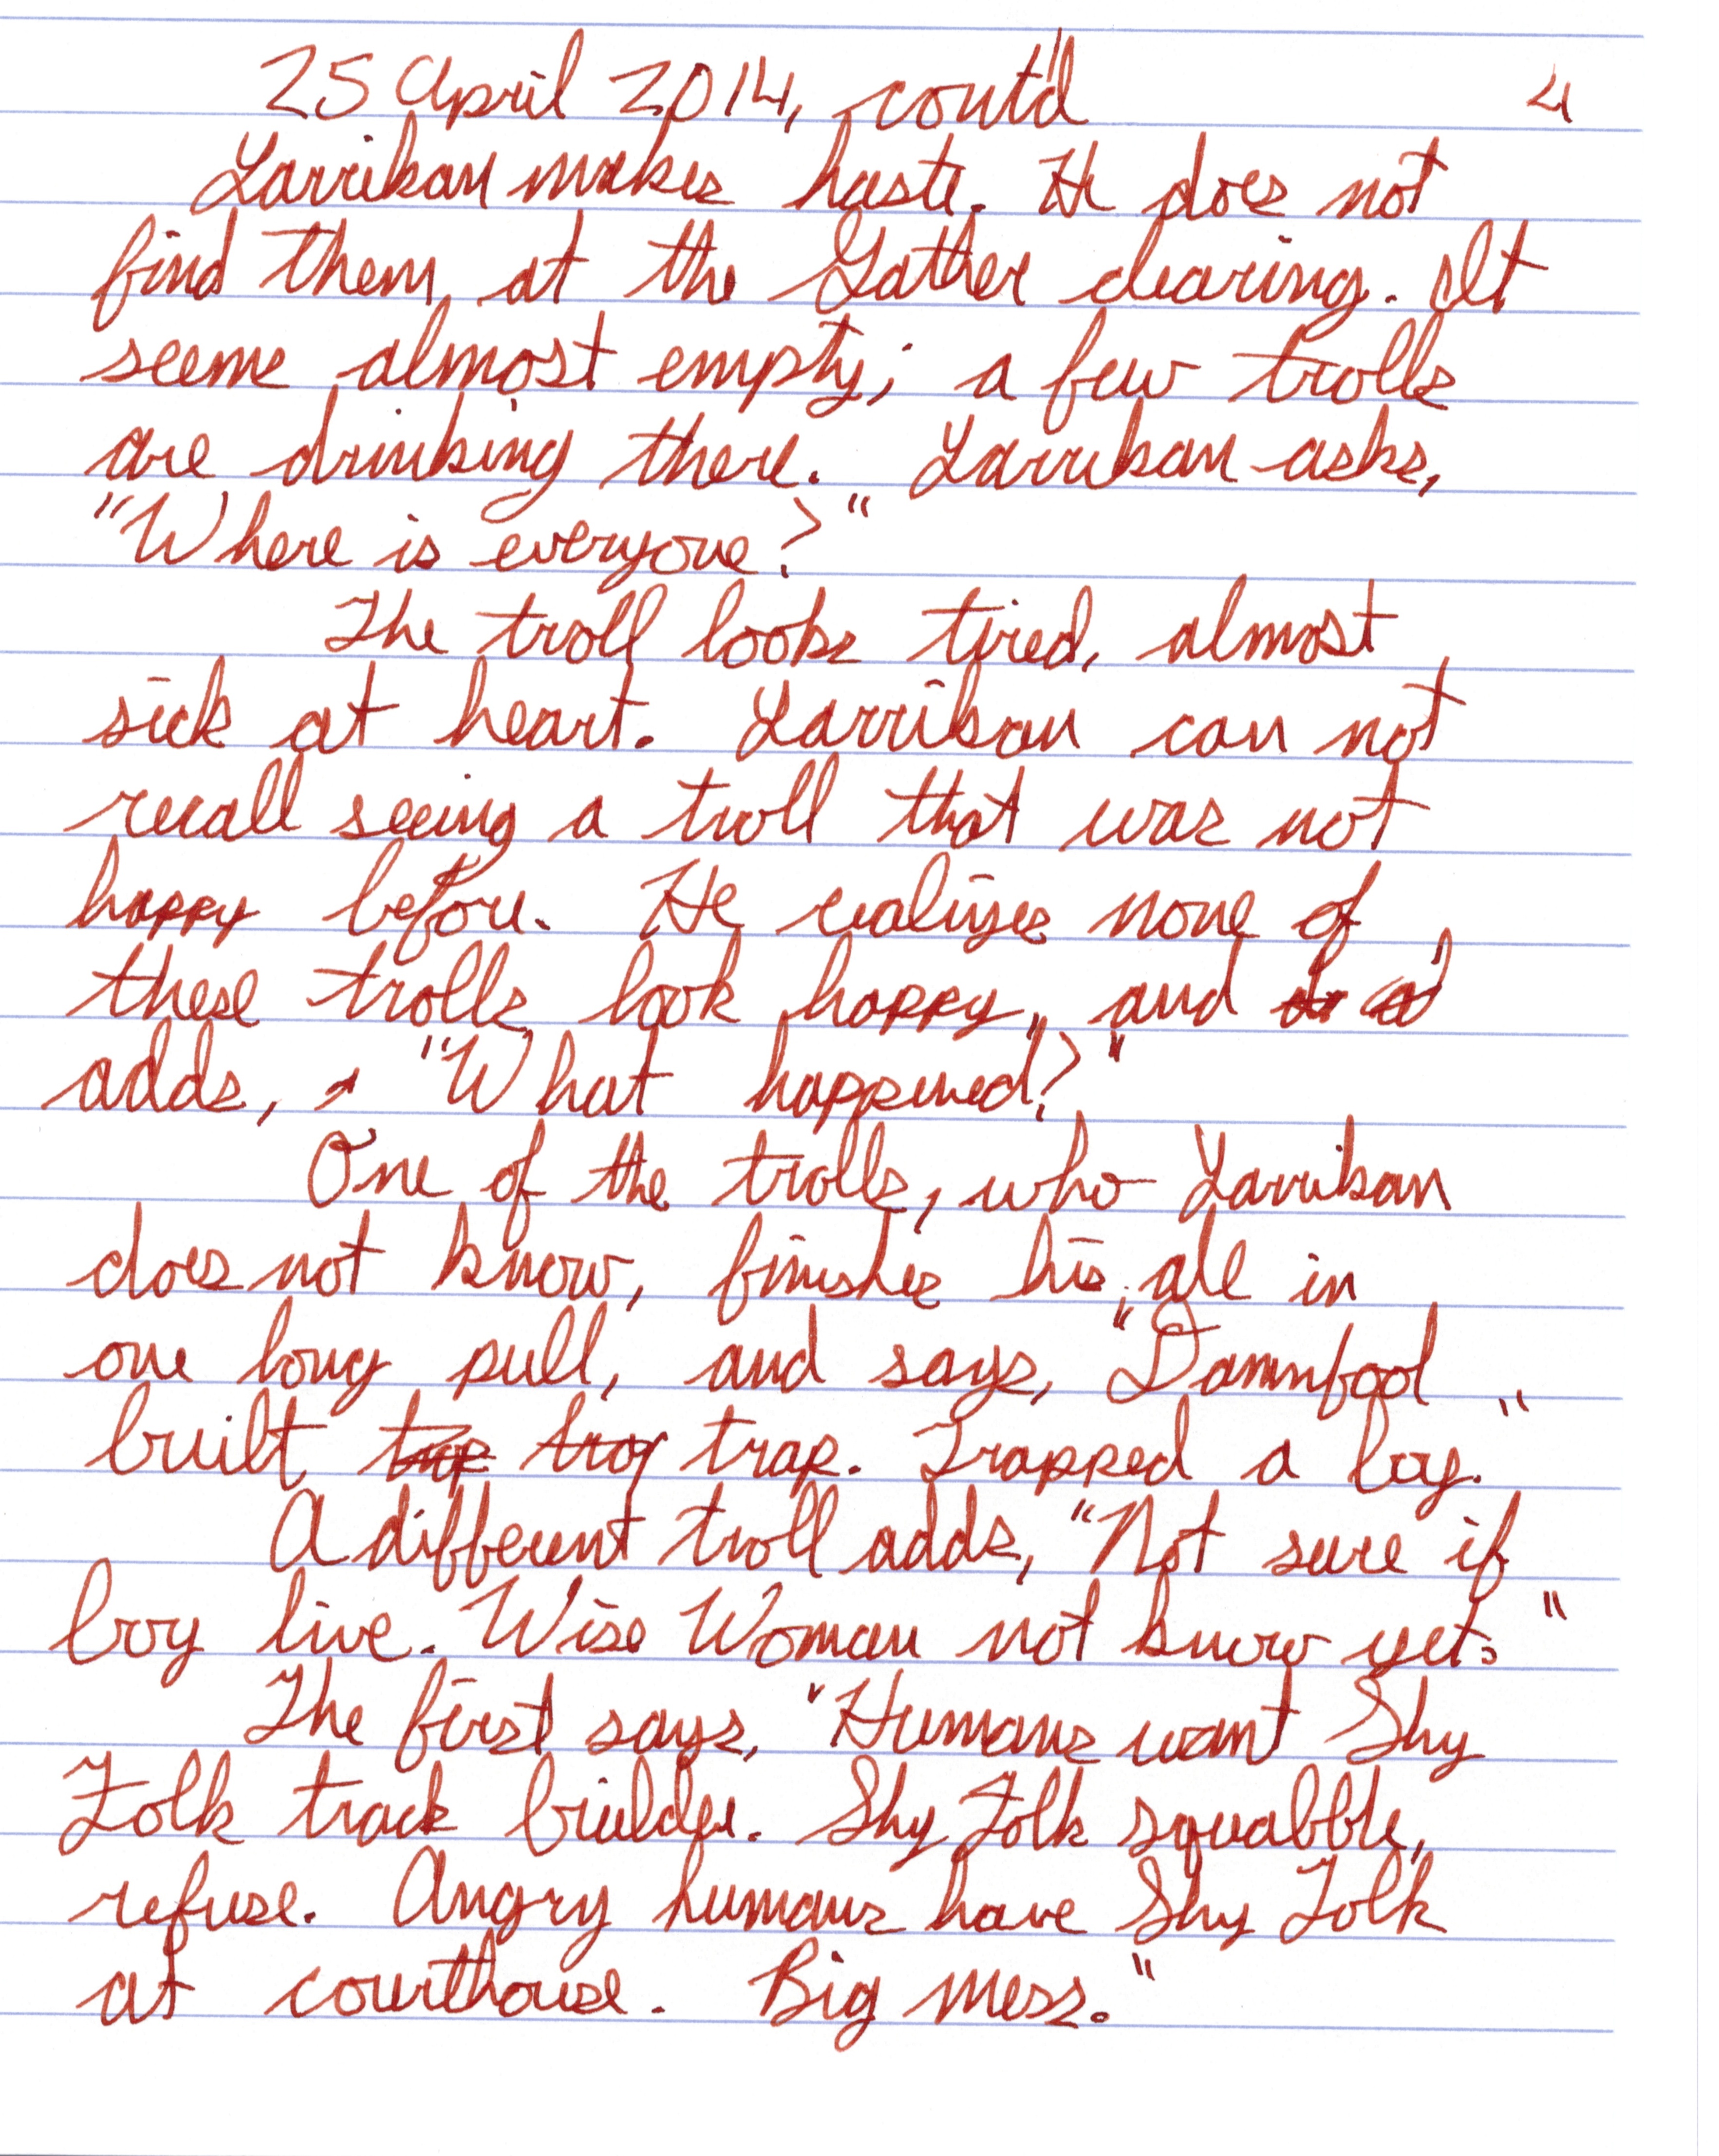 25 April 2014, cont'd 4
Larrikan makes haste. He does not
find them at the Gather clearing. It
seems almost empty; a few trolls
are drinking there. Larrikan asks,
"Where is everyone?"
The troll looks tired, almost
sick at heart. Larrikan can not
recall seeing a troll that was not
happy before. He realizes none of
these trolls look happy, and
adds, "What happened?"
One of the trolls, who Larrikan
does not know, finishes his ale in
one long pull, and says, "Damnfool
built trap. Trapped a boy."
A different troll adds, "Not sure if
boy live. Wise Woman not know yet."
The first says, "Humans want Shy
Folk track builder. Shy Folk squabble,
refuse. Angry humans have Shy Folk
at courthouse. Big mess."